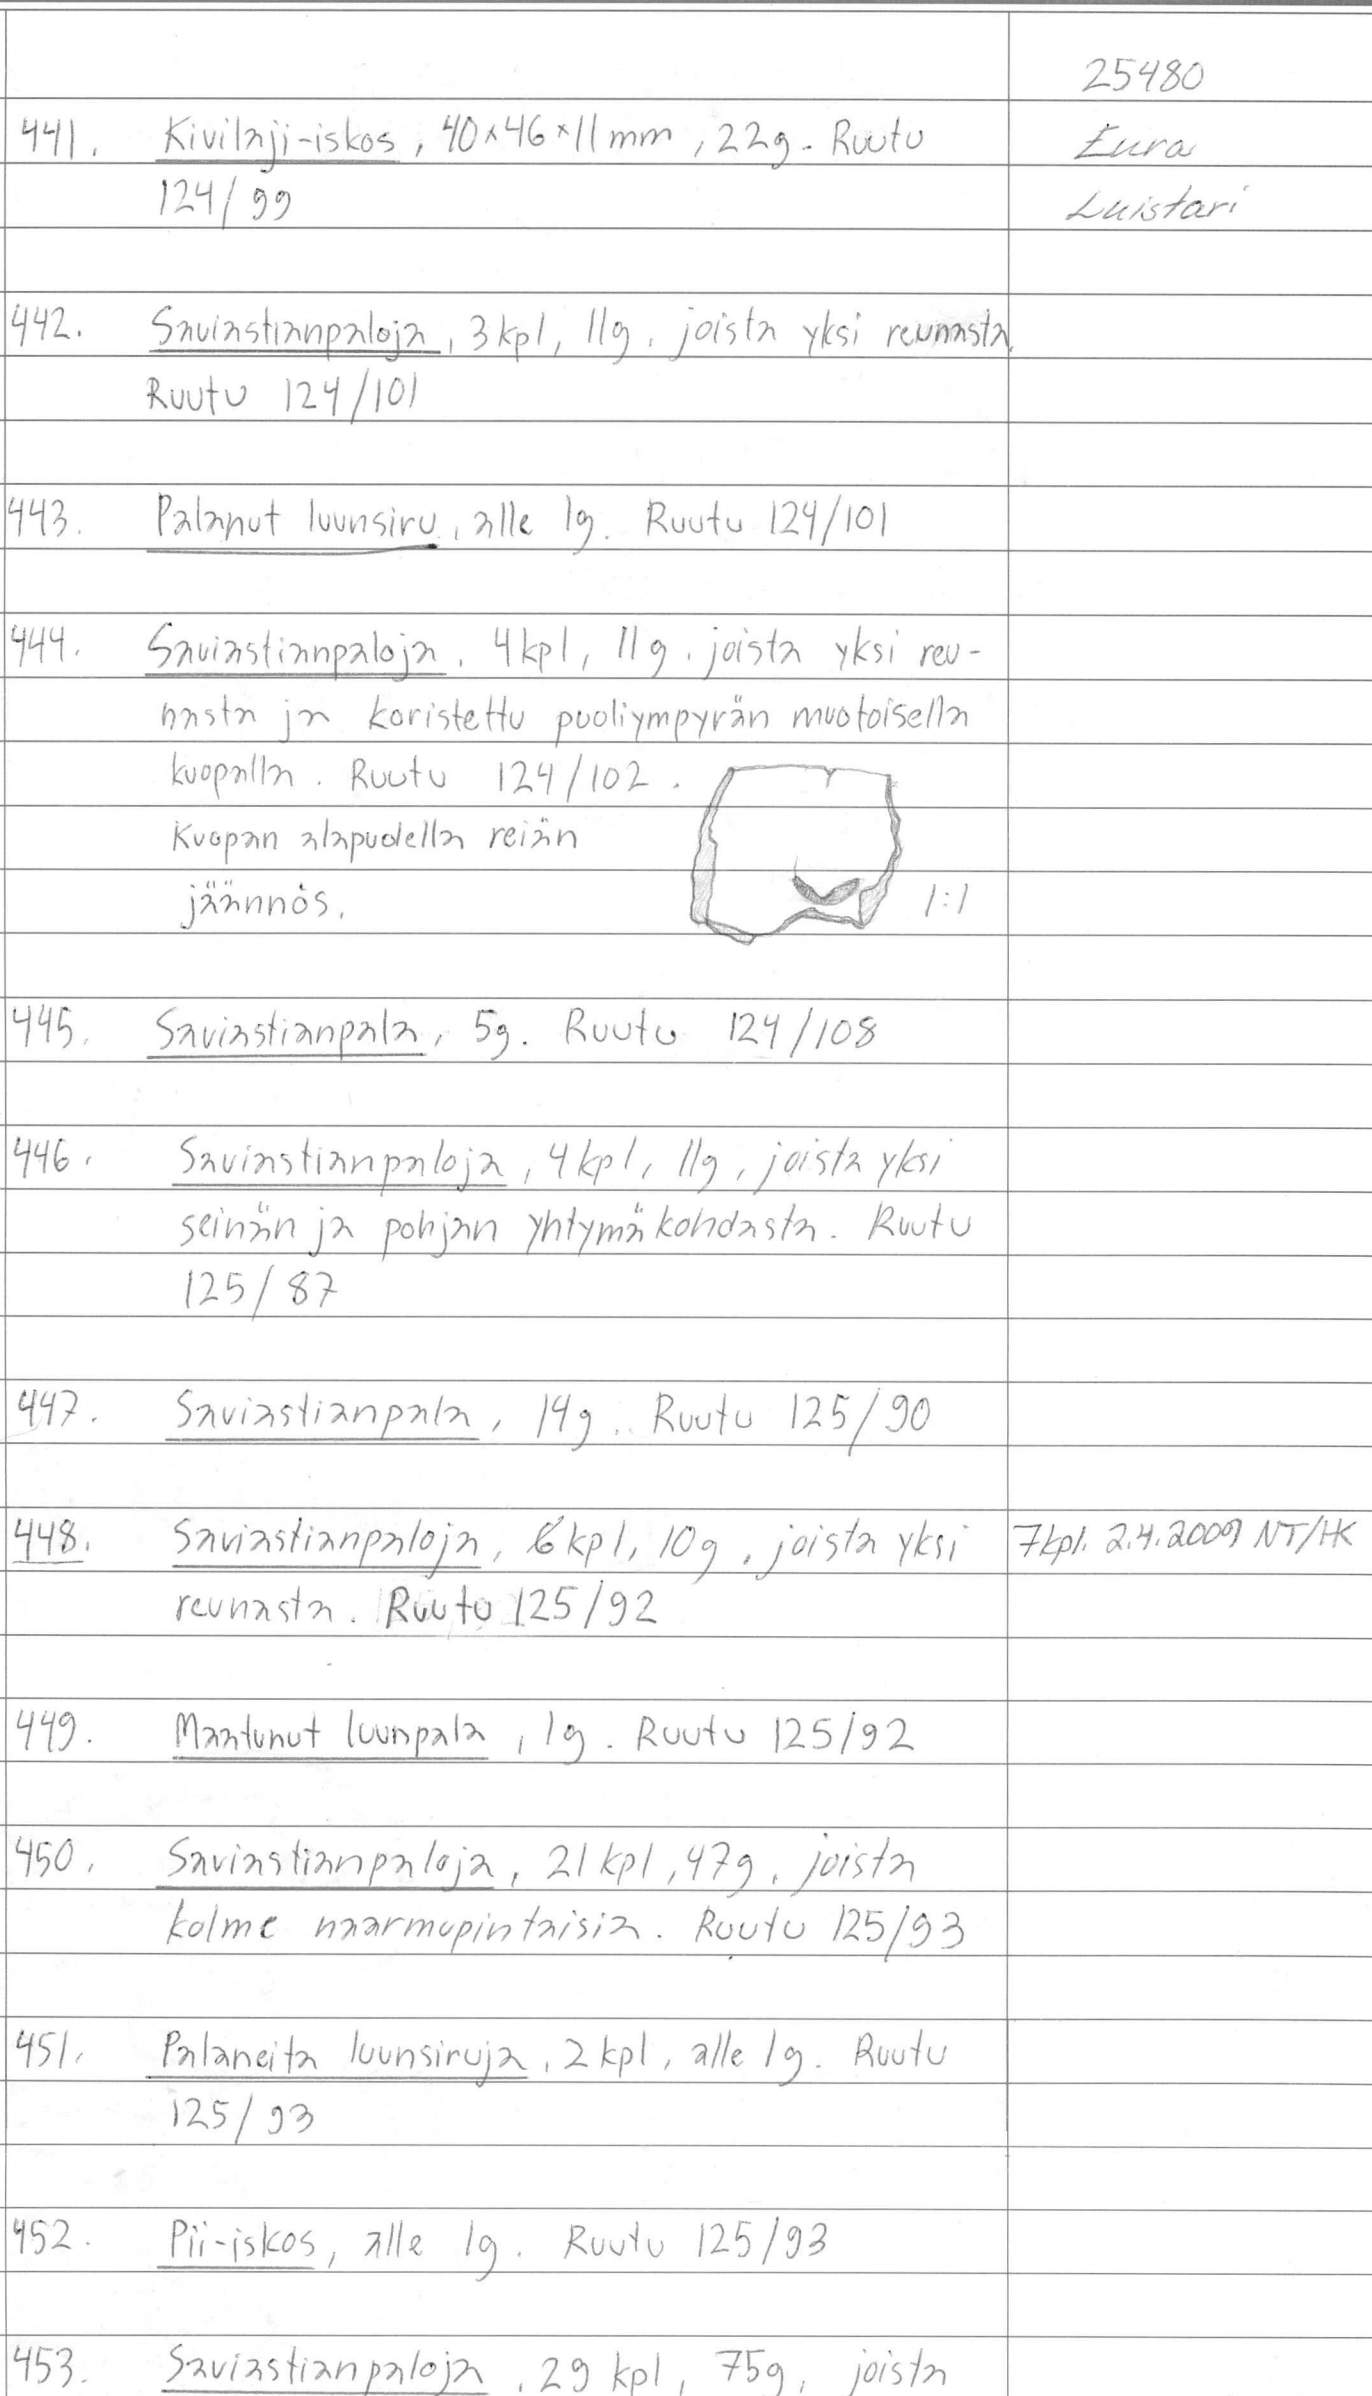 25480
441. Kivilaji-iskos, 40×46×11mm, 22g. Ruutu
Eura
124/99
Luistari
442. Saviastianpaloja, 3kpl, 11g, joista yksi reunasta.
Ruutu 124/101
443. Palanut luunsiru, alle 1g. Ruutu 124/101
444. Saviastianpaloja, 4kpl, 11g, joista yksi reu-
nasta ja koristettu puoliympyrän muotoisella
kuopalla. Ruutu 124/102.
Kuopan alapuolella reiän
jäännös.
1:1
445. Saviastianpala, 5g. Ruutu 124/108
446. Saviastianpaloja, 4kpl, 11g, joista yksi
seinän ja pohjan yhtymäkohdasta. Ruutu
125/87
447. Saviastianpala, 14g. Ruutu 125/90
448. Saviastianpaloja, 6kpl, 10g, joista yksi
7kpl. 2.4.2009 NT/HK
reunasta. Ruutu 125/92
449. Maatunut luunpala, 1g. Ruutu 125/92
450. Saviastianpaloja, 21kpl, 47g, joista
kolme naarmupintaisia. Ruutu 125/93
451. Palaneita luunsiruja, 2kpl, alle 1g. Ruutu
125/93
452. Pii-iskos, alle 1g. Ruutu 125/93
453. Saviastianpaloja, 29 kpl, 75g, joista